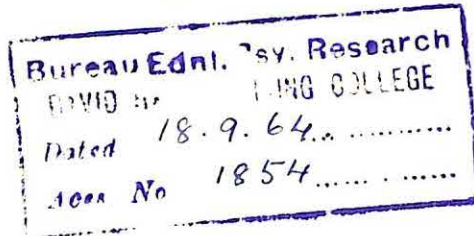 Bureau Ednl. Psy. Research
DAVID COLLEGE
Dated 18.9.64
Accs No 1854